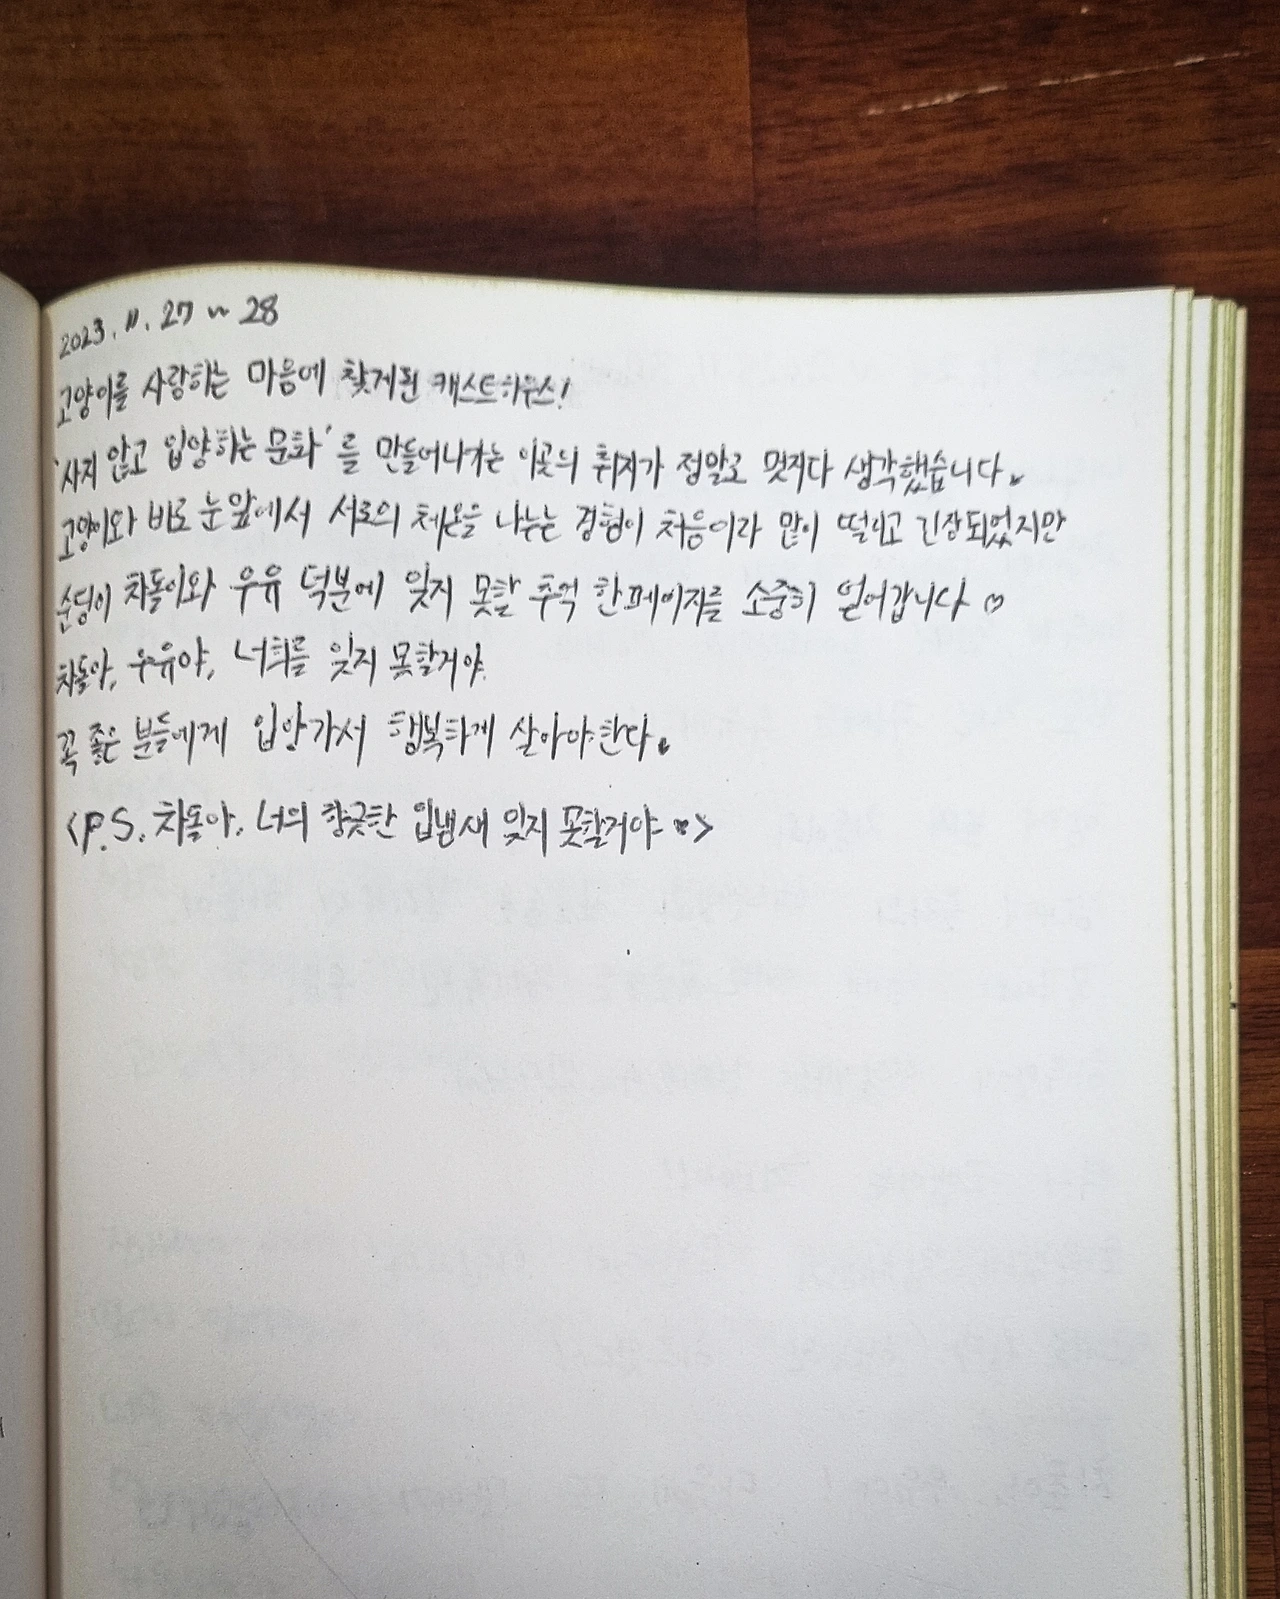 2023. 11. 27 ~ 28
고양이를 사랑하는 마음에 찾게된 캐스트하우스!
'사지 않고 입양하는 문화'를 만들어나가는 이곳의 취지가 정말로 멋지다 생각했습니다.
고양이와 바로 눈앞에서 서로의 체온을 나누는 경험이 처음이라 많이 떨리고 긴장되었지만
순딩이 차돌이와 우유 덕분에 잊지 못할 추억 한페이지를 소중히 얻어갑니다 ♡
차돌아, 우유야, 너희를 잊지 못할거야.
꼭 좋은 분들에게 입양가서 행복하게 살아야한다.
<P.S. 차돌아, 너의 향긋한 입냄새 잊지 못할거야 ♥>